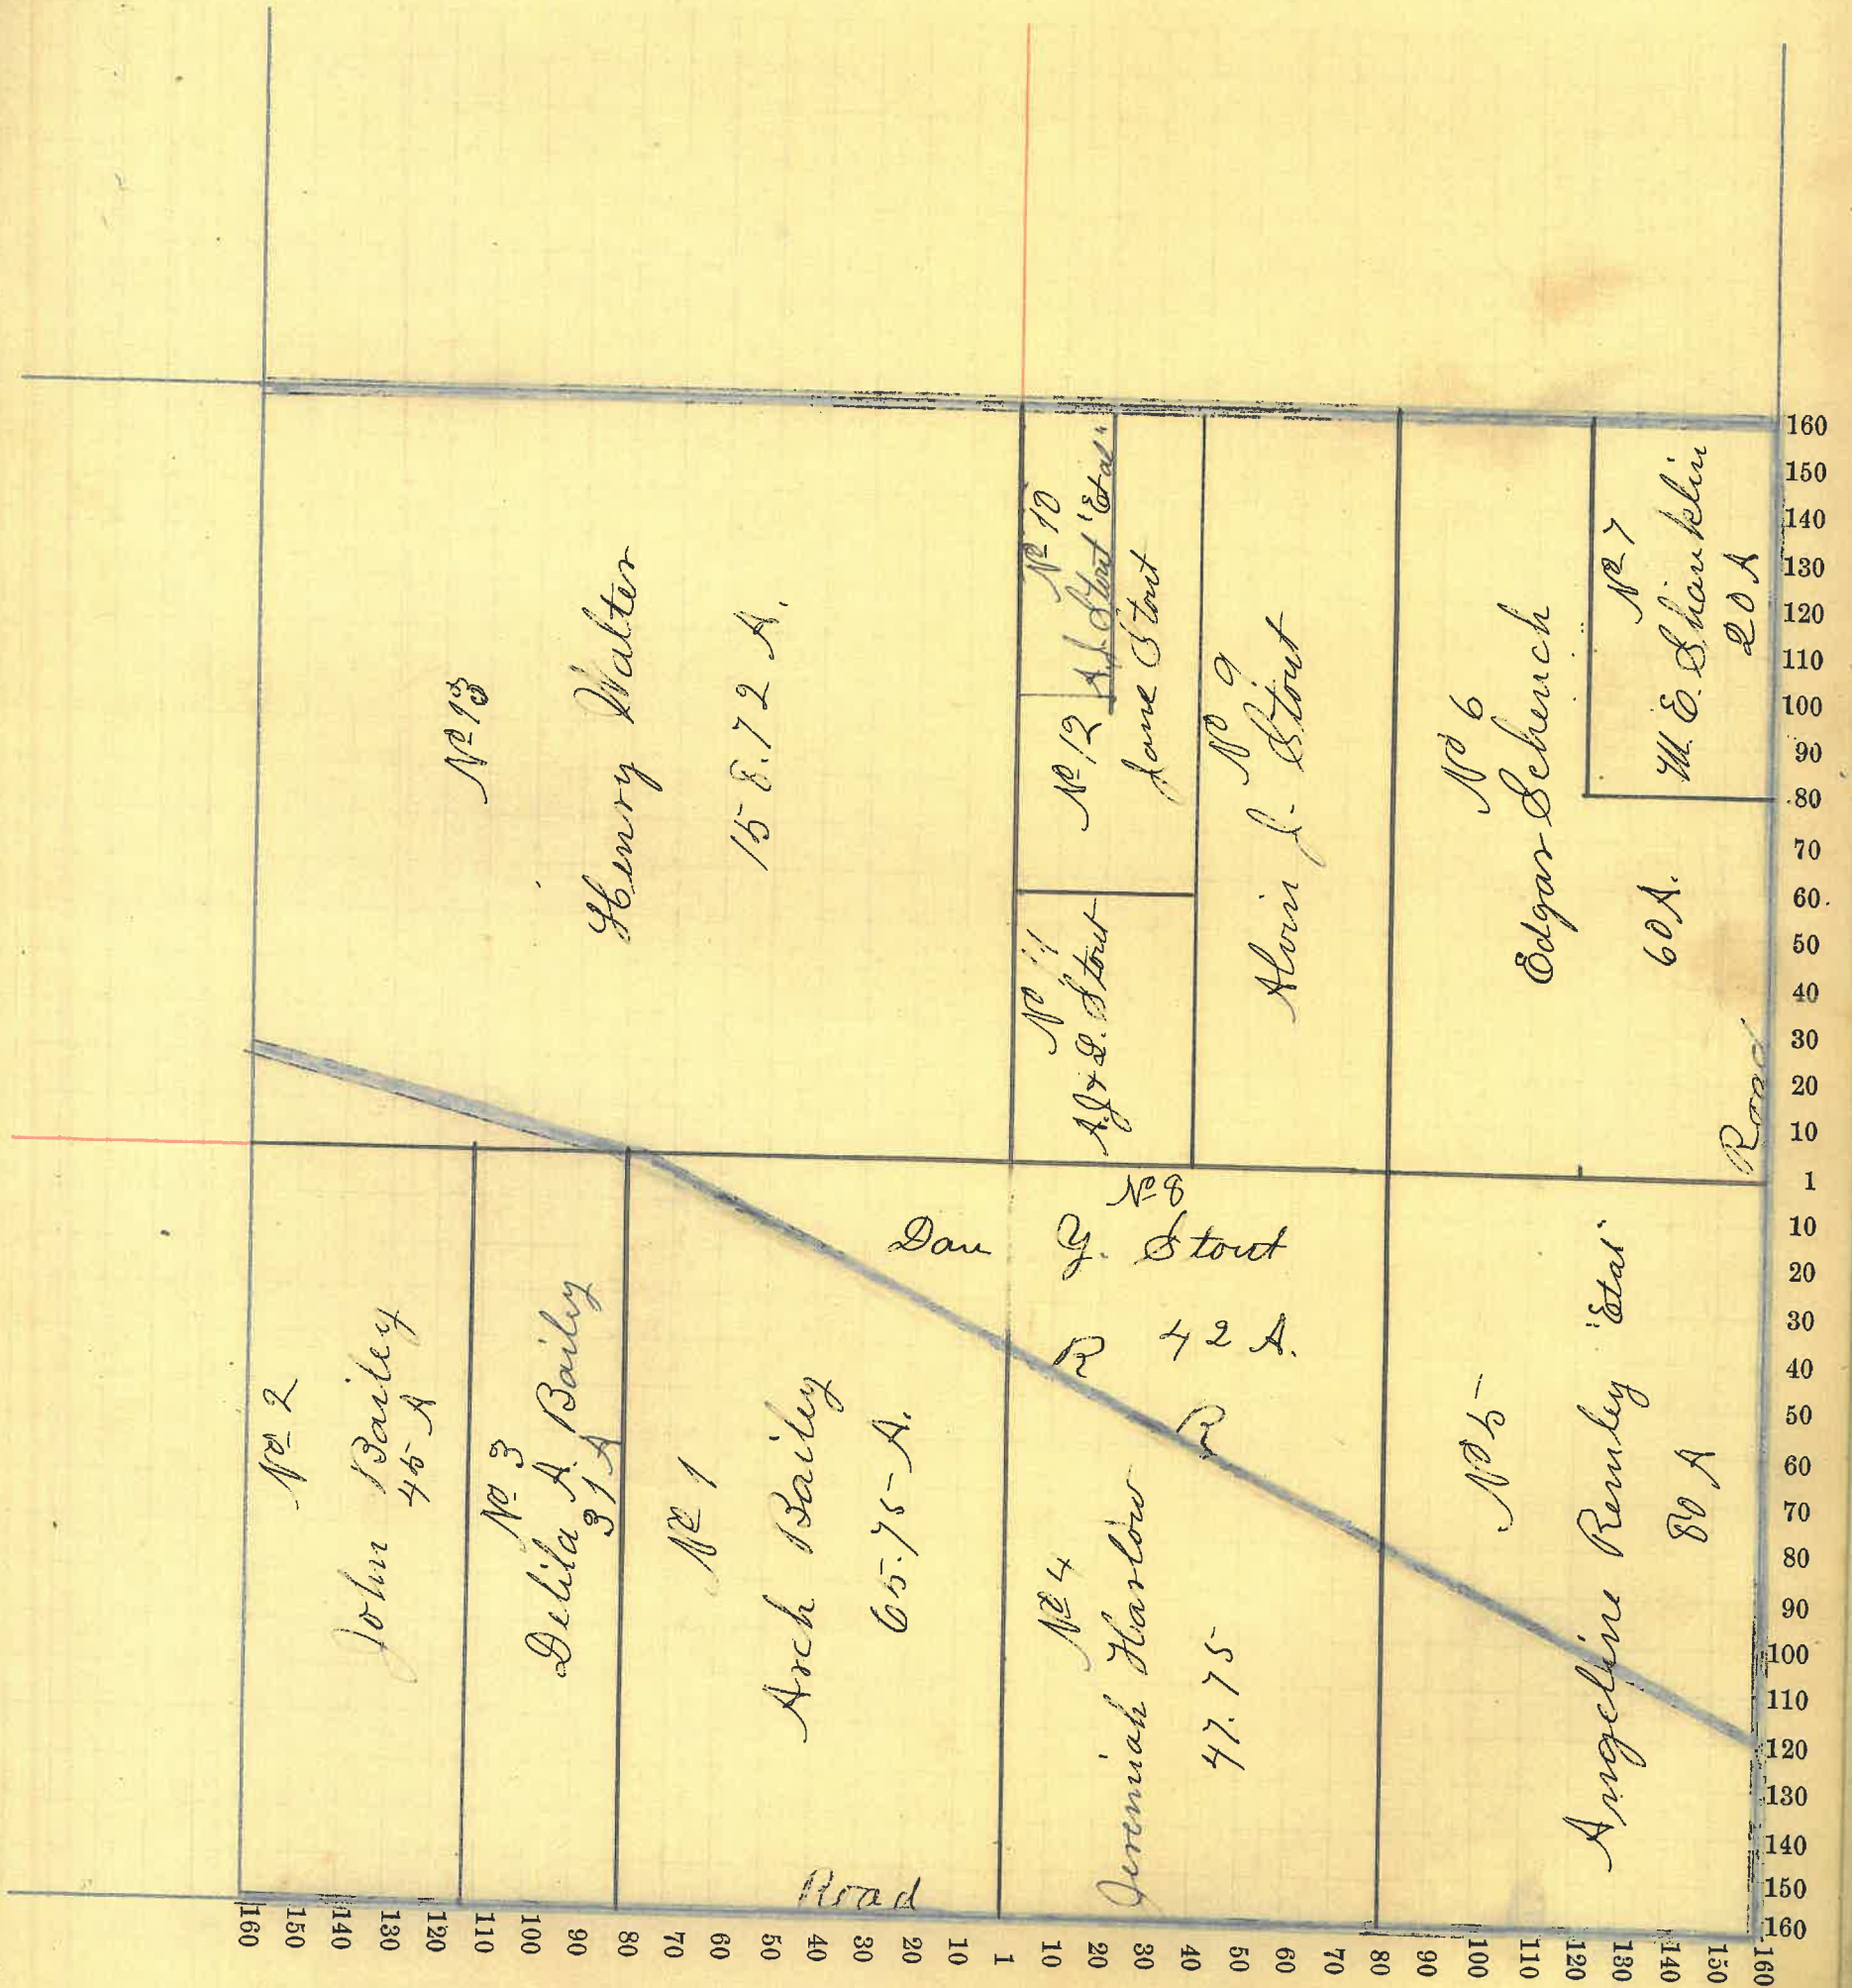 No 13
Henry Walter
158.72 A.
No 10
A J Stout "Etal"
No 12
Jane Stout
No 11
A. J & L. Stout
No 9
Alvin J. Stout
No 6
Edgar Schenck
60 A.
No 7
M. E. Shanklin
20 A
Road
No 2
John Bailey
45 A
No 3
Delila A. Bailey
31 A
No 1
Arch Bailey
65.75 A.
Road
No 8
Dan Y. Stout
R 42 A.
R
No 4
Jeremiah Harlow
47.75
No 5
Angeline Remley "Etal"
80 A
160
150
140
130
120
110
100
90
80
70
60
50
40
30
20
10
1
10
20
30
40
50
60
70
80
90
100
110
120
130
140
150
160
160 150 140 130 120 110 100 90 80 70 60 50 40 30 20 10 1 10 20 30 40 50 60 70 80 90 100 110 120 130 140 150 160